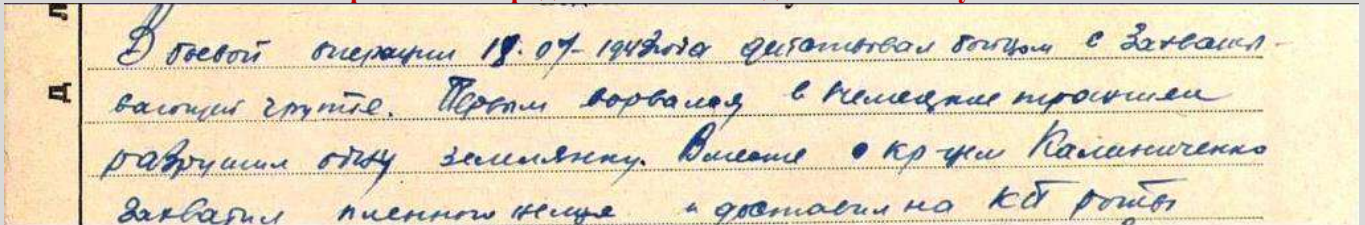 В боевой операции 18.07-1943года действовал бойцом в Захваты-
вающей группе. Первым ворвался в немецкие траншеи
разрушил одну землянку. Вместе с кр-цем Калиниченко
Захватил пленного немца и доставил на КП роты